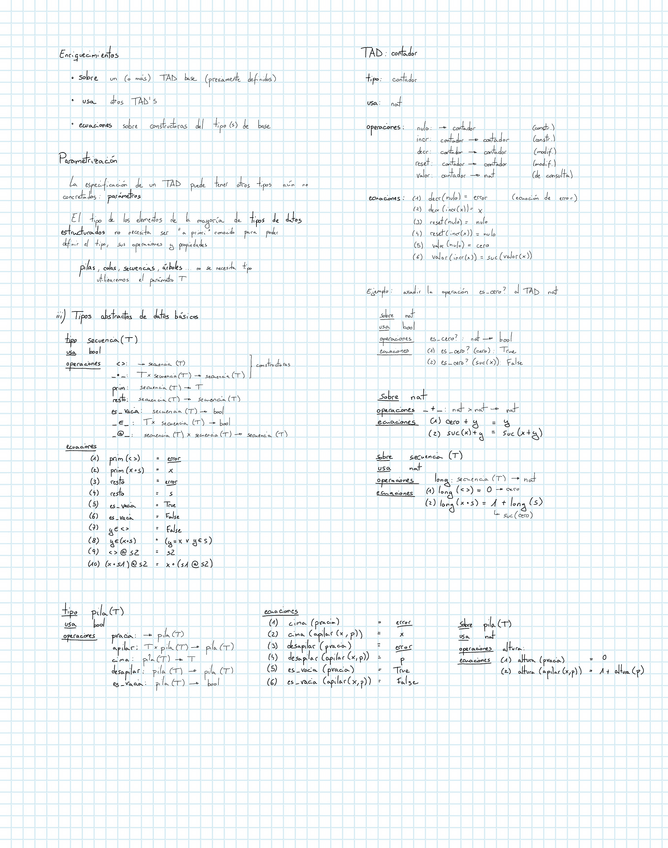 Enriquecimientos
• sobre un (o más) TAD base (previamente definidos)
• usa otros TAD's
• ecuaciones sobre constructoras del tipo(s) de base
Parametrización
La especificación de un TAD puede tener otros tipos aún no
concretados: parámetros
El tipo de los elementos de la mayoría de tipos de datos
estructurados no necesita ser "a priori" conocido para poder
definir el tipo, sus operaciones y propiedades
pilas, colas, secuencias, árboles: no se necesita tipo
utilizaremos el parámetro T
iii) Tipos abstractos de datos básicos
tipo secuencia (T)
usa bool
operaciones <>: → secuencia (T)
_•_: T × secuencia (T) → secuencia (T)
constructoras
prim: secuencia (T) → T
resto: secuencia (T) → secuencia (T)
es_vacía: secuencia (T) → bool
_∈_: T × secuencia (T) → bool
_@_: secuencia (T) × secuencia (T) → secuencia (T)
ecuaciones
(1) prim (<>) = error
(2) prim (x•s) = x
(3) resto = error
(4) resto = s
(5) es_vacía = True
(6) es_vacía = False
(7) y∈<> = False
(8) y∈(x•s) = (y=x ∨ y∈s)
(9) <> @ s2 = s2
(10) (x•s1) @ s2 = x•(s1@s2)
TAD: contador
tipo: contador
usa: nat
operaciones: nulo: → contador (constr.)
incr: contador → contador (constr.)
decr: contador → contador (modif.)
reset: contador → contador (modif.)
valor: contador → nat (de consulta)
ecuaciones: (1) decr(nulo) = error (ecuación de error)
(2) decr(incr(x)) = x
(3) reset(nulo) = nulo
(4) reset(incr(x)) = nulo
(5) valor(nulo) = cero
(6) valor(incr(x)) = suc(valor(x))
Ejemplo: añadir la operación es_cero? al TAD nat
sobre nat
usa bool
operaciones es_cero?: nat → bool
ecuaciones (1) es_cero? (cero): True
(2) es_cero? (suc(x)) False
sobre nat
operaciones _+_: nat × nat → nat
ecuaciones (1) cero + y = y
(2) suc(x)+y = suc(x+y)
sobre secuencia (T)
usa nat
operaciones long: secuencia (T) → nat
ecuaciones (1) long (<>) = 0 → cero
(2) long (x•s) = 1 + long (s)
↳ suc(cero)
tipo pila(T)
usa bool
operaciones pvacia: → pila(T)
apilar: T × pila(T) → pila(T)
cima: pila(T) → T
desapilar: pila(T) → pila(T)
es_vacia: pila(T) → bool
ecuaciones
(1) cima (pvacia) = error
(2) cima (apilar (x, p)) = x
(3) desapilar (pvacia) = error
(4) desapilar (apilar(x,p)) = p
(5) es_vacia (pvacia) = True
(6) es_vacia (apilar(x,p)) = False
sobre pila(T)
usa nat
operaciones altura:
ecuaciones (1) altura (pvacia) = 0
(2) altura (apilar(x,p)) = 1 + altura (p)